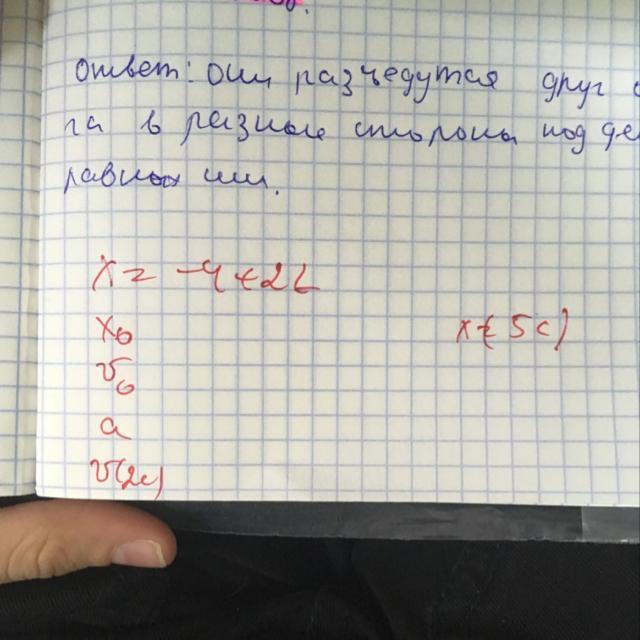 Ответ: они разъедутся друг
га в разные стороны под де
равных им.
x = -4+2t
x₀
x(5c)
v₀
a
v(2c)